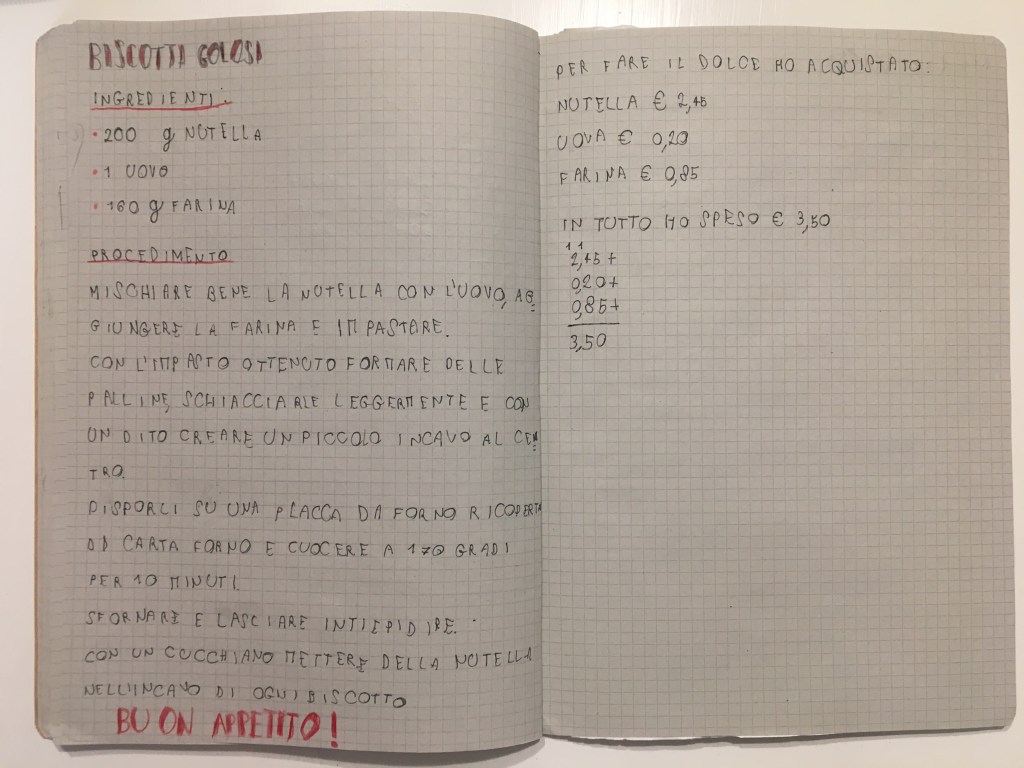 BISCOTTI GOLOSI
INGREDIENTI:
• 200 g NUTELLA
• 1 UOVO
• 160 g FARINA
PROCEDIMENTO
MISCHIARE BENE LA NUTELLA CON L'UOVO, AG
GIUNGERE LA FARINA E IMPASTARE.
CON L'IMPASTO OTTENUTO FORMARE DELLE
PALLINE, SCHIACCIARLE LEGGERMENTE E CON
UN DITO CREARE UN PICCOLO INCAVO AL CEN
TRO.
DISPORLI SU UNA PLACCA DA FORNO RICOPERTA
DI CARTA FORNO E CUOCERE A 170 GRADI
PER 10 MINUTI.
SFORNARE E LASCIARE INTIEPIDIRE.
CON UN CUCCHIANO METTERE DELLA NUTELLA
NELL'INCAVO DI OGNI BISCOTTO
BUON APPETITO!
PER FARE IL DOLCE HO ACQUISTATO:
NUTELLA € 2,45
UOVA € 0,20
FARINA € 0,85
IN TUTTO HO SPESO € 3,50
1 1
2,45 +
0,20 +
0,85 +
3,50